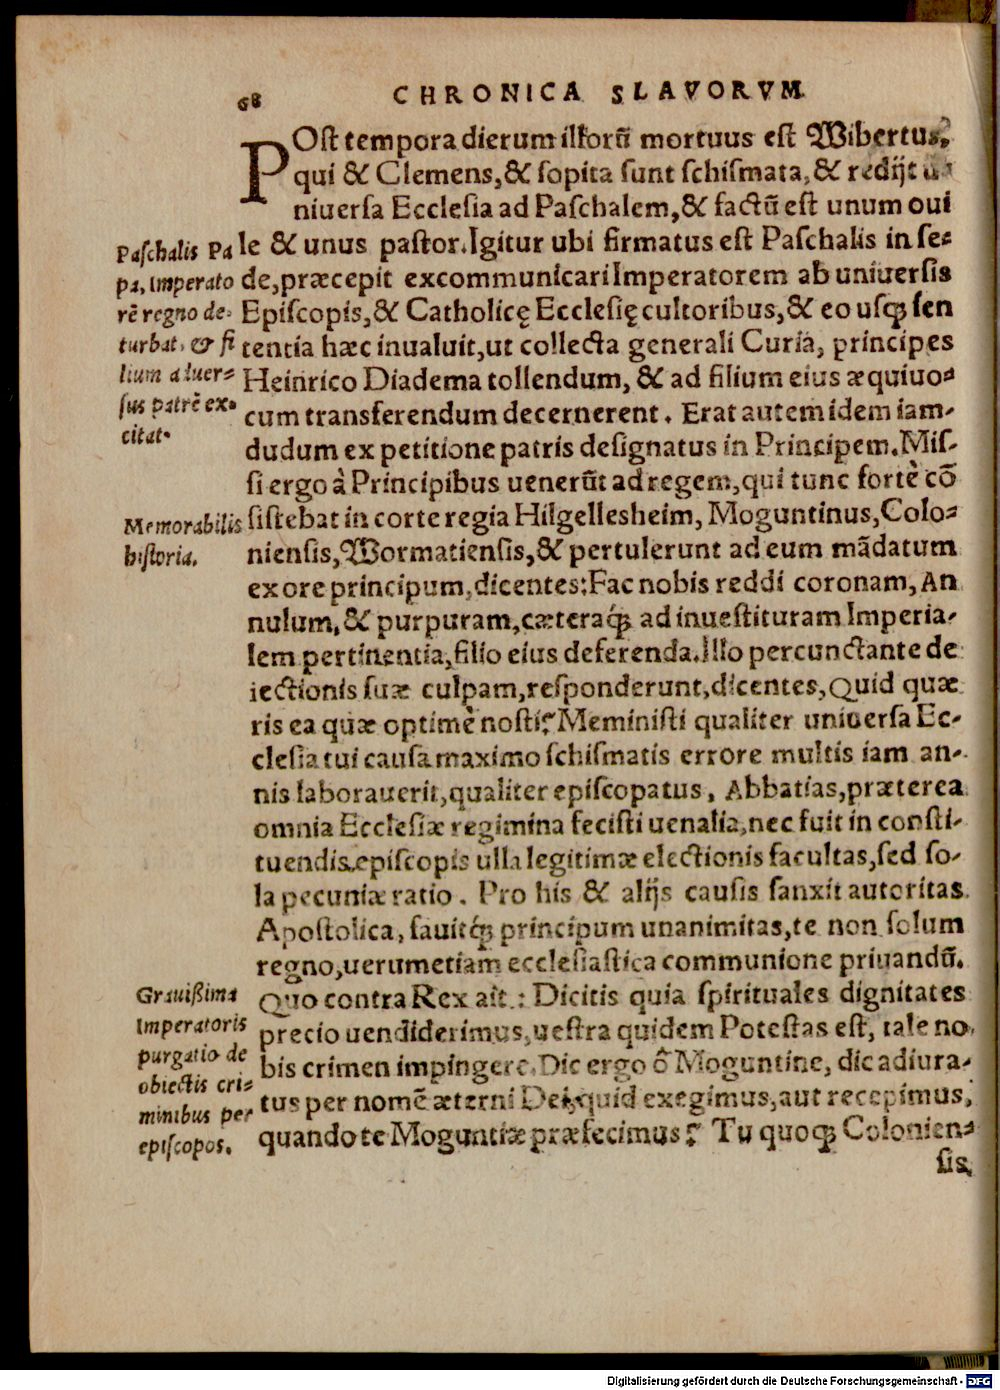 68
CHRONICA SLAVORVM
POſt tempora dierum illorũ mortuus eſt Wibertus,
qui & Clemens,& ſopita ſunt ſchiſmata,& redijt u
niuerſa Eccleſia ad Paſchalem,& factũ eſt unum oui
le & unus paſtor. Igitur ubi firmatus eſt Paſchalis in ſe-
de,præcepit excommunicari Imperatorem ab uniuerſis
Epiſcopis,& Catholicę Eccleſię cultoribus,& eo uſqꝫ ſen
tentia hæc inualuit,ut collecta generali Curia, principes
Heinrico Diadema tollendum, & ad filium eius æquiuo-
cum transferendum decernerent. Erat autem idem iam-
dudum ex petitione patris deſignatus in Principem. Miſ-
ſi ergo à Principibus uenerũt ad regem,qui tunc fortè cõ
ſiſtebat in corte regia Hilgellesheim, Moguntinus,Colo-
nienſis,Wormatienſis,& pertulerunt ad eum mãdatum
ex ore principum,dicentes: Fac nobis reddi coronam, An
nulum,& purpuram,cæteraqꝫ́ ad inueſtituram Imperia-
lem pertinentia,filio eius deferenda. Illo percunctante de
iectionis ſuæ culpam,reſponderunt,dicentes,Quid quæ
ris ea quæ optimè noſti? Meminiſti qualiter uniuerſa Ec-
cleſia tui cauſa maximo ſchiſmatis errore multis iam an-
nis laborauerit,qualiter epiſcopatus, Abbatias,præterea
omnia Eccleſiæ regimina feciſti uenalia,nec fuit in conſti-
tuendis epiſcopis ulla legitimæ electionis facultas,ſed ſo-
la pecuniæ ratio. Pro his & alijs cauſis ſanxit autoritas
Apoſtolica, fauitqꝫ́ principum unanimitas,te non ſolum
regno,uerumetiam eccleſiaſtica communione priuandũ.
Quo contra Rex ait: Dicitis quia ſpirituales dignitates
precio uendiderimus,ueſtra quidem Poteſtas eſt, tale no
bis crimen impingere. Dic ergo ô Moguntine, dic adiura-
tus per nomẽ æterni Dei,quid exegimus,aut recepimus,
quando te Moguntiæ præfecimus? Tu quoqꝫ Colonien-
ſis,
Paſchalis Pa
pa, Imperato
rẽ regno de-
turbat, & fi
lium aduer-
ſus patrẽ ex-
citat.
Memorabilis
hiſtoria.
Grauißima
Imperatoris
purgatio de
obiectis cri-
minibus per
epiſcopos.
Digitalisierung gefördert durch die Deutsche Forschungsgemeinschaft - DFG